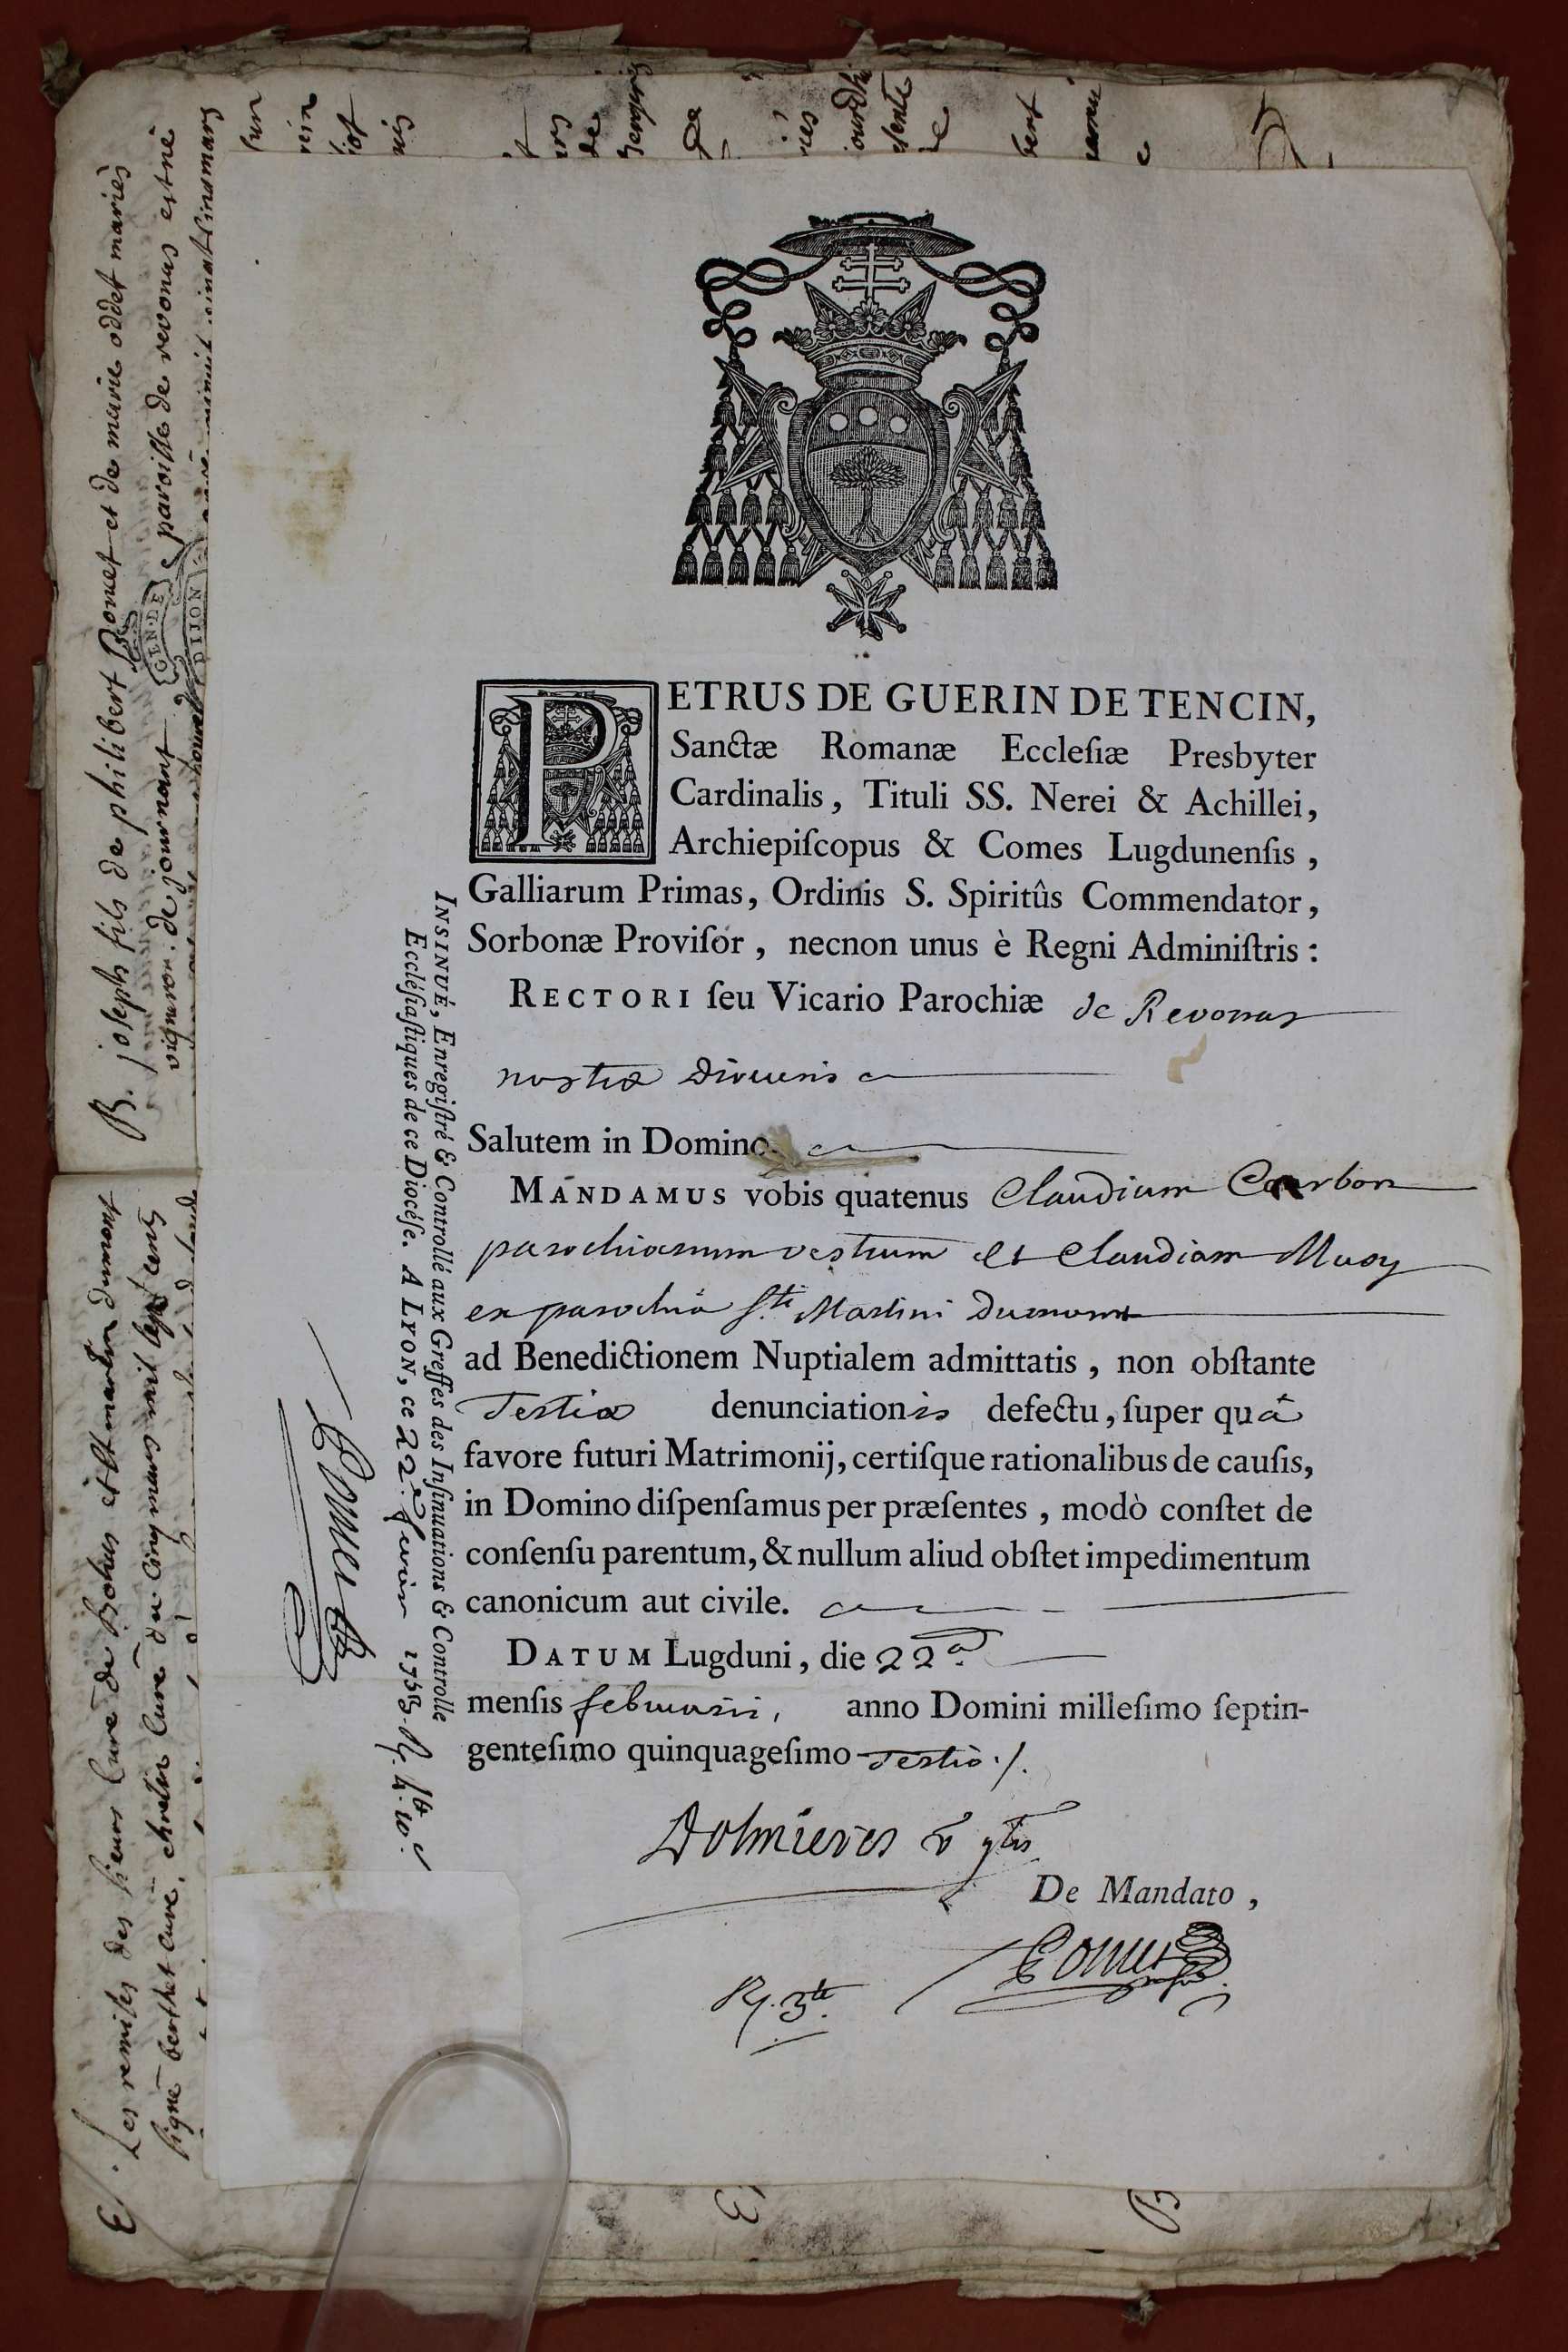 PETRUS DE GUERIN DE TENCIN,
Sanctæ Romanæ Eccleſiæ Presbyter
Cardinalis, Tituli SS. Nerei & Achillei,
Archiepiſcopus & Comes Lugdunenſis,
Galliarum Primas, Ordinis S. Spiritûs Commendator,
Sorbonæ Proviſor, necnon unus è Regni Adminiſtris:
RECTORI ſeu Vicario Parochiæ de Revonas
nostræ Diœcesis
Salutem in Domino.
MANDAMUS vobis quatenus Claudium Carbon
parochianum vestrum et Claudiam Muzy
ex parochiâ Sti. Martini Dumont
ad Benedictionem Nuptialem admittatis, non obſtante
Tertiæ denunciationis defectu, ſuper quâ
favore futuri Matrimonij, certiſque rationalibus de cauſis,
in Domino diſpenſamus per præſentes, modò conſtet de
conſenſu parentum, & nullum aliud obſtet impedimentum
canonicum aut civile.
DATUM Lugduni, die 22a.
menſis februarii, anno Domini milleſimo ſeptin-
genteſimo quinquageſimo Tertio./.
Dolmieres
De Mandato,
Rx. 3tt.
INSINUÉ, Enregiſtré & Controllé aux Greffes des Inſinuations & Controlle
Eccléſiaſtiques de ce Diocéſe. A LYON, ce 22e fevrier 1753. Rx. 4tt. 10.
B. joseph fils de philibert Bonnet et de marie oddet mariès
vigneron de journant paroisse de revonas est nè
GEN. DE
DIJON
Les remises des sieurs Curé de Bohas et St martin dumont
signé berthet curé, chrètin Curé du Cinq mars mil sept cens